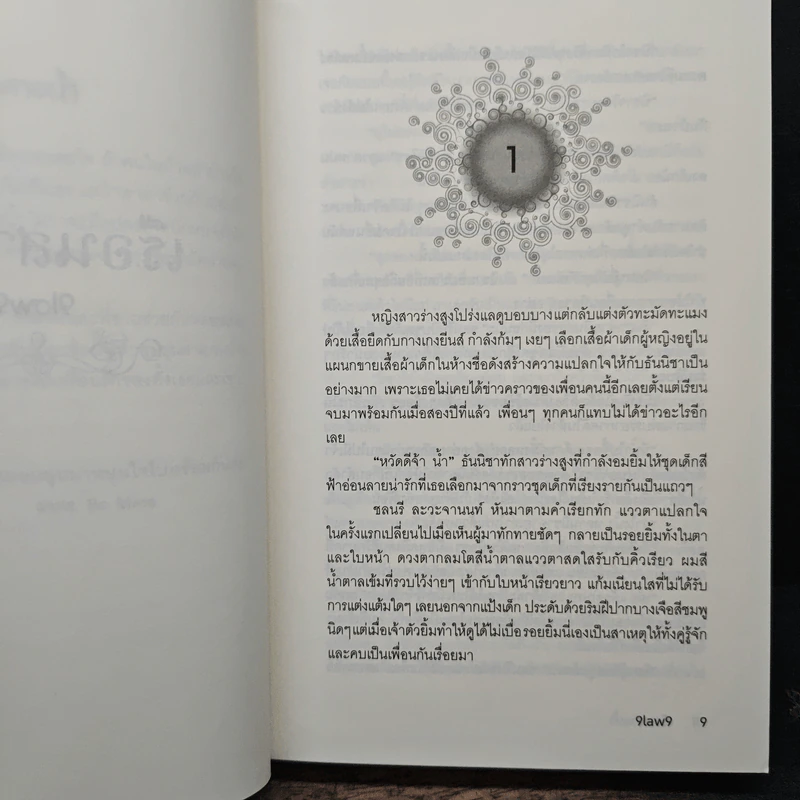 1
หญิงสาวร่างสูงโปร่งแลดูบอบบางแต่กลับแต่งตัวทะมัดทะแมง
ด้วยเสื้อยืดกับกางเกงยีนส์ กำลังก้มๆ เงยๆ เลือกเสื้อผ้าเด็กผู้หญิงอยู่ใน
แผนกขายเสื้อผ้าเด็กในห้างชื่อดังสร้างความแปลกใจให้กับธันนิชาเป็น
อย่างมาก เพราะเธอไม่เคยได้ข่าวคราวของเพื่อนคนนี้อีกเลยตั้งแต่เรียน
จบมาพร้อมกันเมื่อสองปีที่แล้ว เพื่อนๆ ทุกคนก็แทบไม่ได้ข่าวอะไรอีก
เลย
“หวัดดีจ้า น้ำ” ธันนิชาทักสาวร่างสูงที่กำลังอมยิ้มให้ชุดเด็กสี
ฟ้าอ่อนลายน่ารักที่เธอเลือกมาจากราวชุดเด็กที่เรียงรายกันเป็นแถวๆ
ชลนรี ละวะจานนท์ หันมาตามคำเรียกทัก แววตาแปลกใจ
ในครั้งแรกเปลี่ยนไปเมื่อเห็นผู้มาทักทายชัดๆ กลายเป็นรอยยิ้มทั้งในตา
และใบหน้า ดวงตากลมโตสีน้ำตาลแววตาสดใสรับกับคิ้วเรียว ผมสี
น้ำตาลเข้มที่รวบไว้ง่ายๆ เข้ากับใบหน้าเรียวยาว แก้มเนียนใสที่ไม่ได้รับ
การแต่งแต้มใดๆ เลยนอกจากแป้งเด็ก ประดับด้วยริมฝีปากบางเจือสีชมพู
นิดๆแต่เมื่อเจ้าตัวยิ้มทำให้ดูได้ไม่เบื่อรอยยิ้มนี่เองเป็นสาเหตุให้ทั้งคู่รู้จัก
และคบเป็นเพื่อนกันเรื่อยมา
9law9 9